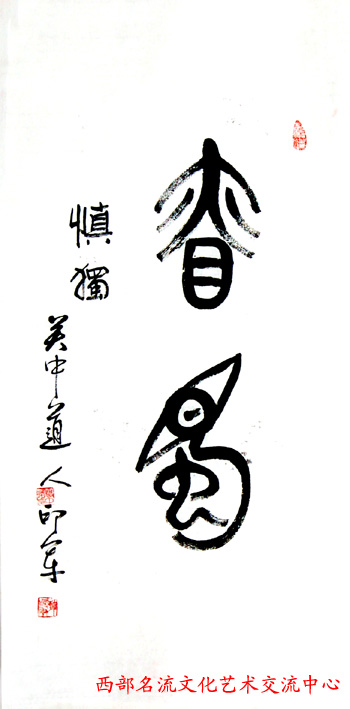 昚蜀
慎獨
关中道人印军
西部名流文化艺术交流中心